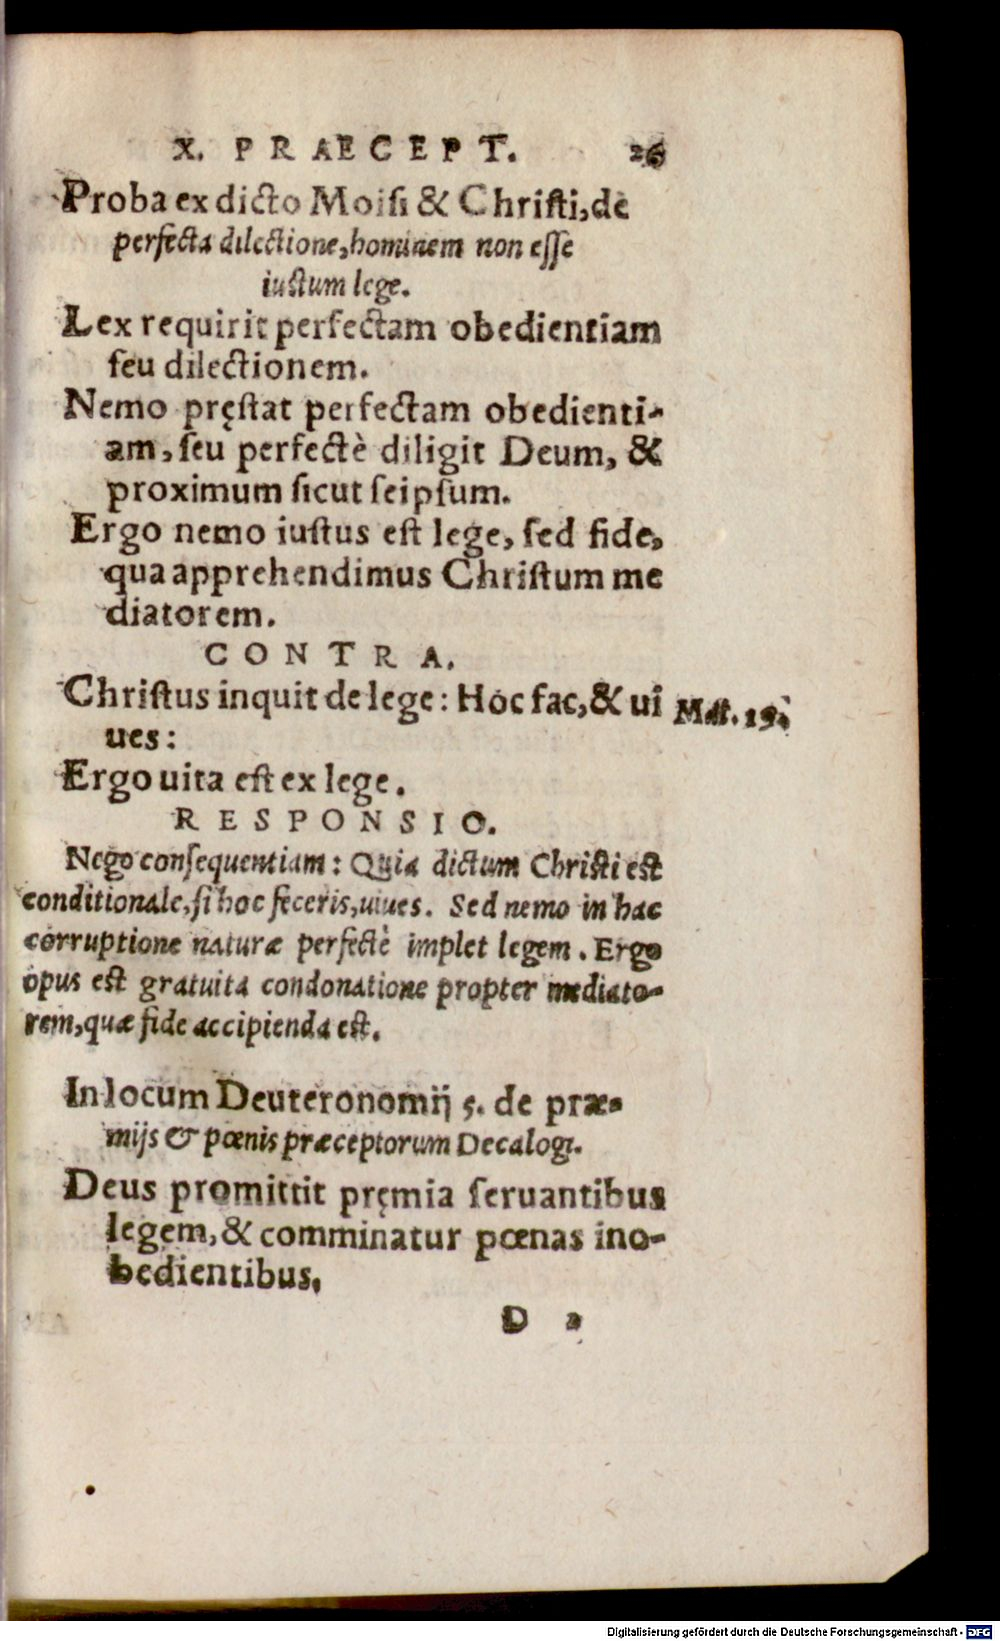 X. PRAECEPT. 26
Proba ex dicto Moisi & Christi, de
perfecta dilectione, hominem non esse
iustum lege.
Lex requirit perfectam obedientiam
seu dilectionem.
Nemo pręstat perfectam obedienti-
am, seu perfectè diligit Deum, &
proximum sicut seipsum.
Ergo nemo iustus est lege, sed fide,
qua apprehendimus Christum me
diatorem.
CONTRA.
Christus inquit de lege: Hoc fac, & ui
ues:
Mat. 19.
Ergo uita est ex lege.
RESPONSIO.
Nego consequentiam: Quia dictum Christi est
conditionale, si hoc feceris, uiues. Sed nemo in hac
corruptione naturæ perfectè implet legem. Ergo
opus est gratuita condonatione propter mediato-
rem, quæ fide accipienda est.
In locum Deuteronomij 5. de præ-
mijs & pœnis præceptorum Decalogi.
Deus promittit pręmia seruantibus
legem, & comminatur pœnas ino-
bedientibus.
D 2
Digitalisierung gefördert durch die Deutsche Forschungsgemeinschaft - DFG